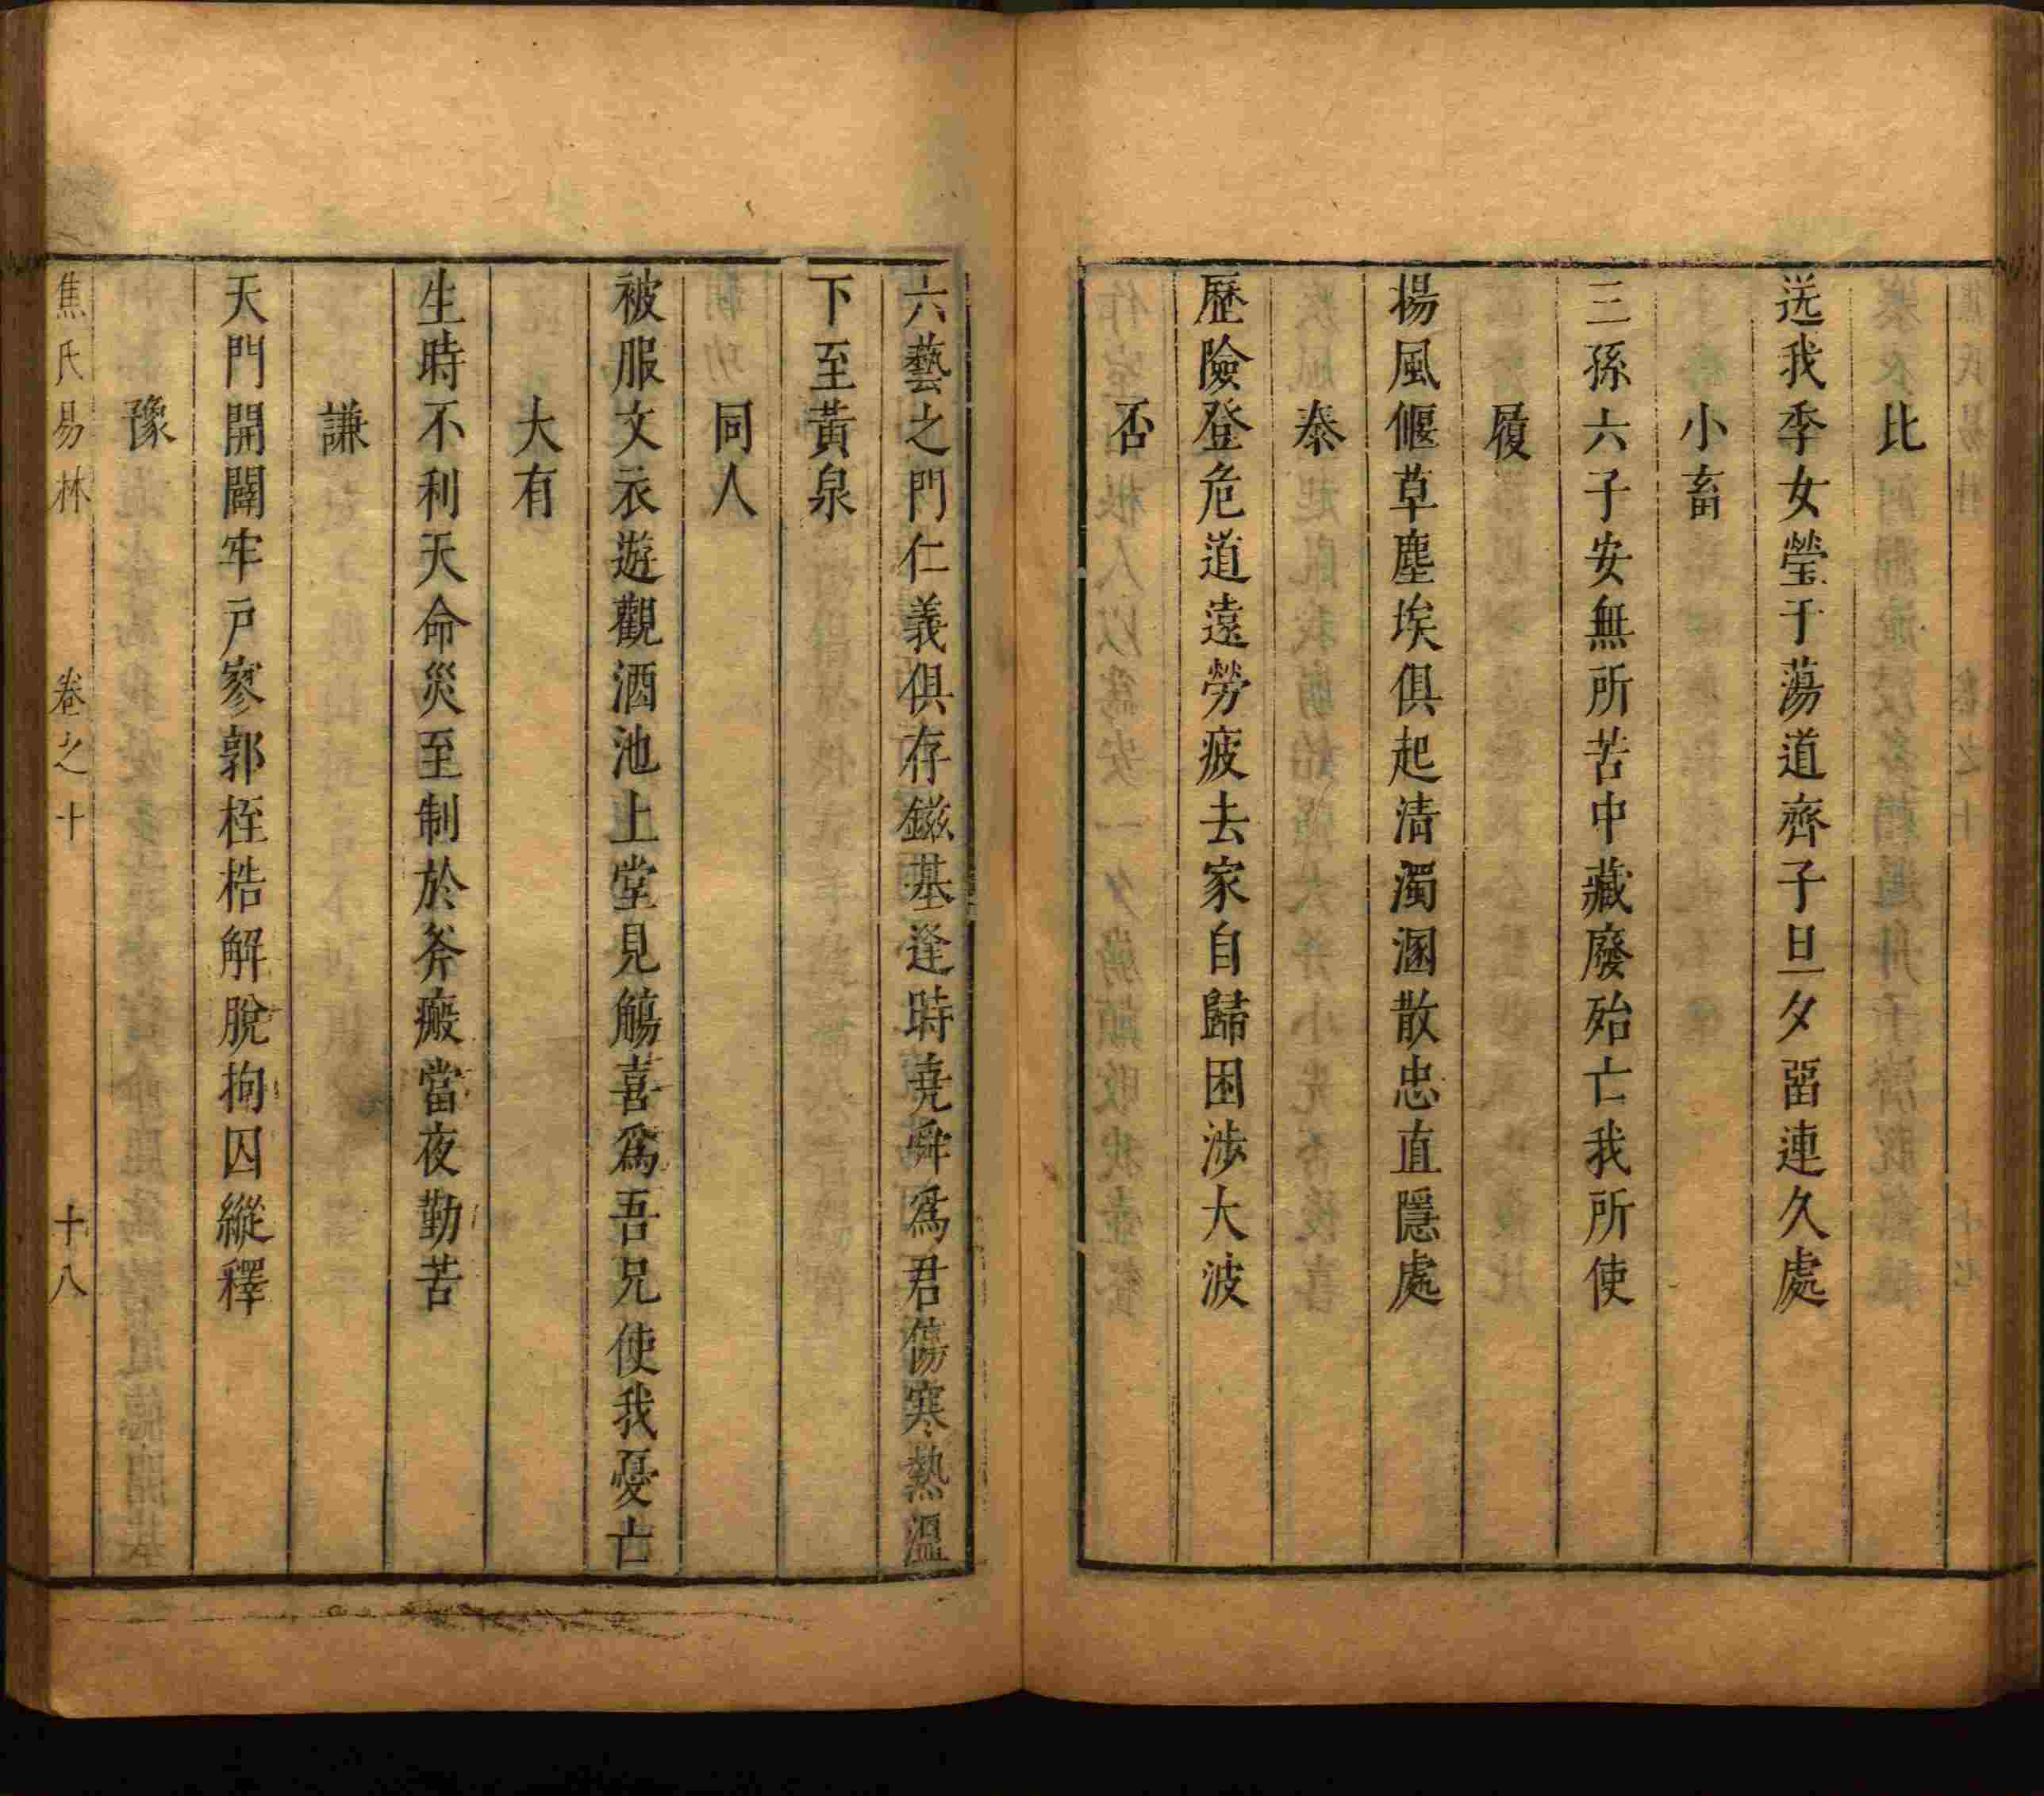 比
送我季女瑩于蕩道齊子旦夕畱連久處
小畜
三孫六子安無所苦中藏廢殆亡我所使
履
揚風偃草塵埃俱起清濁溷散忠直隱處
泰
歷險登危道遠勞疲去家自歸困涉大波
否
六藝之門仁義俱存鎡基逢時堯舜爲君傷寒熱溫
下至黃泉
同人
被服文衣遊觀酒池上堂見觴喜爲吾兄使我憂亡
大有
生時不利天命災至制於斧瘢當夜勤苦
謙
天門開闢牢戸寥郭桎梏解脫拘囚縱釋
豫
焦氏易林 卷之十 十八